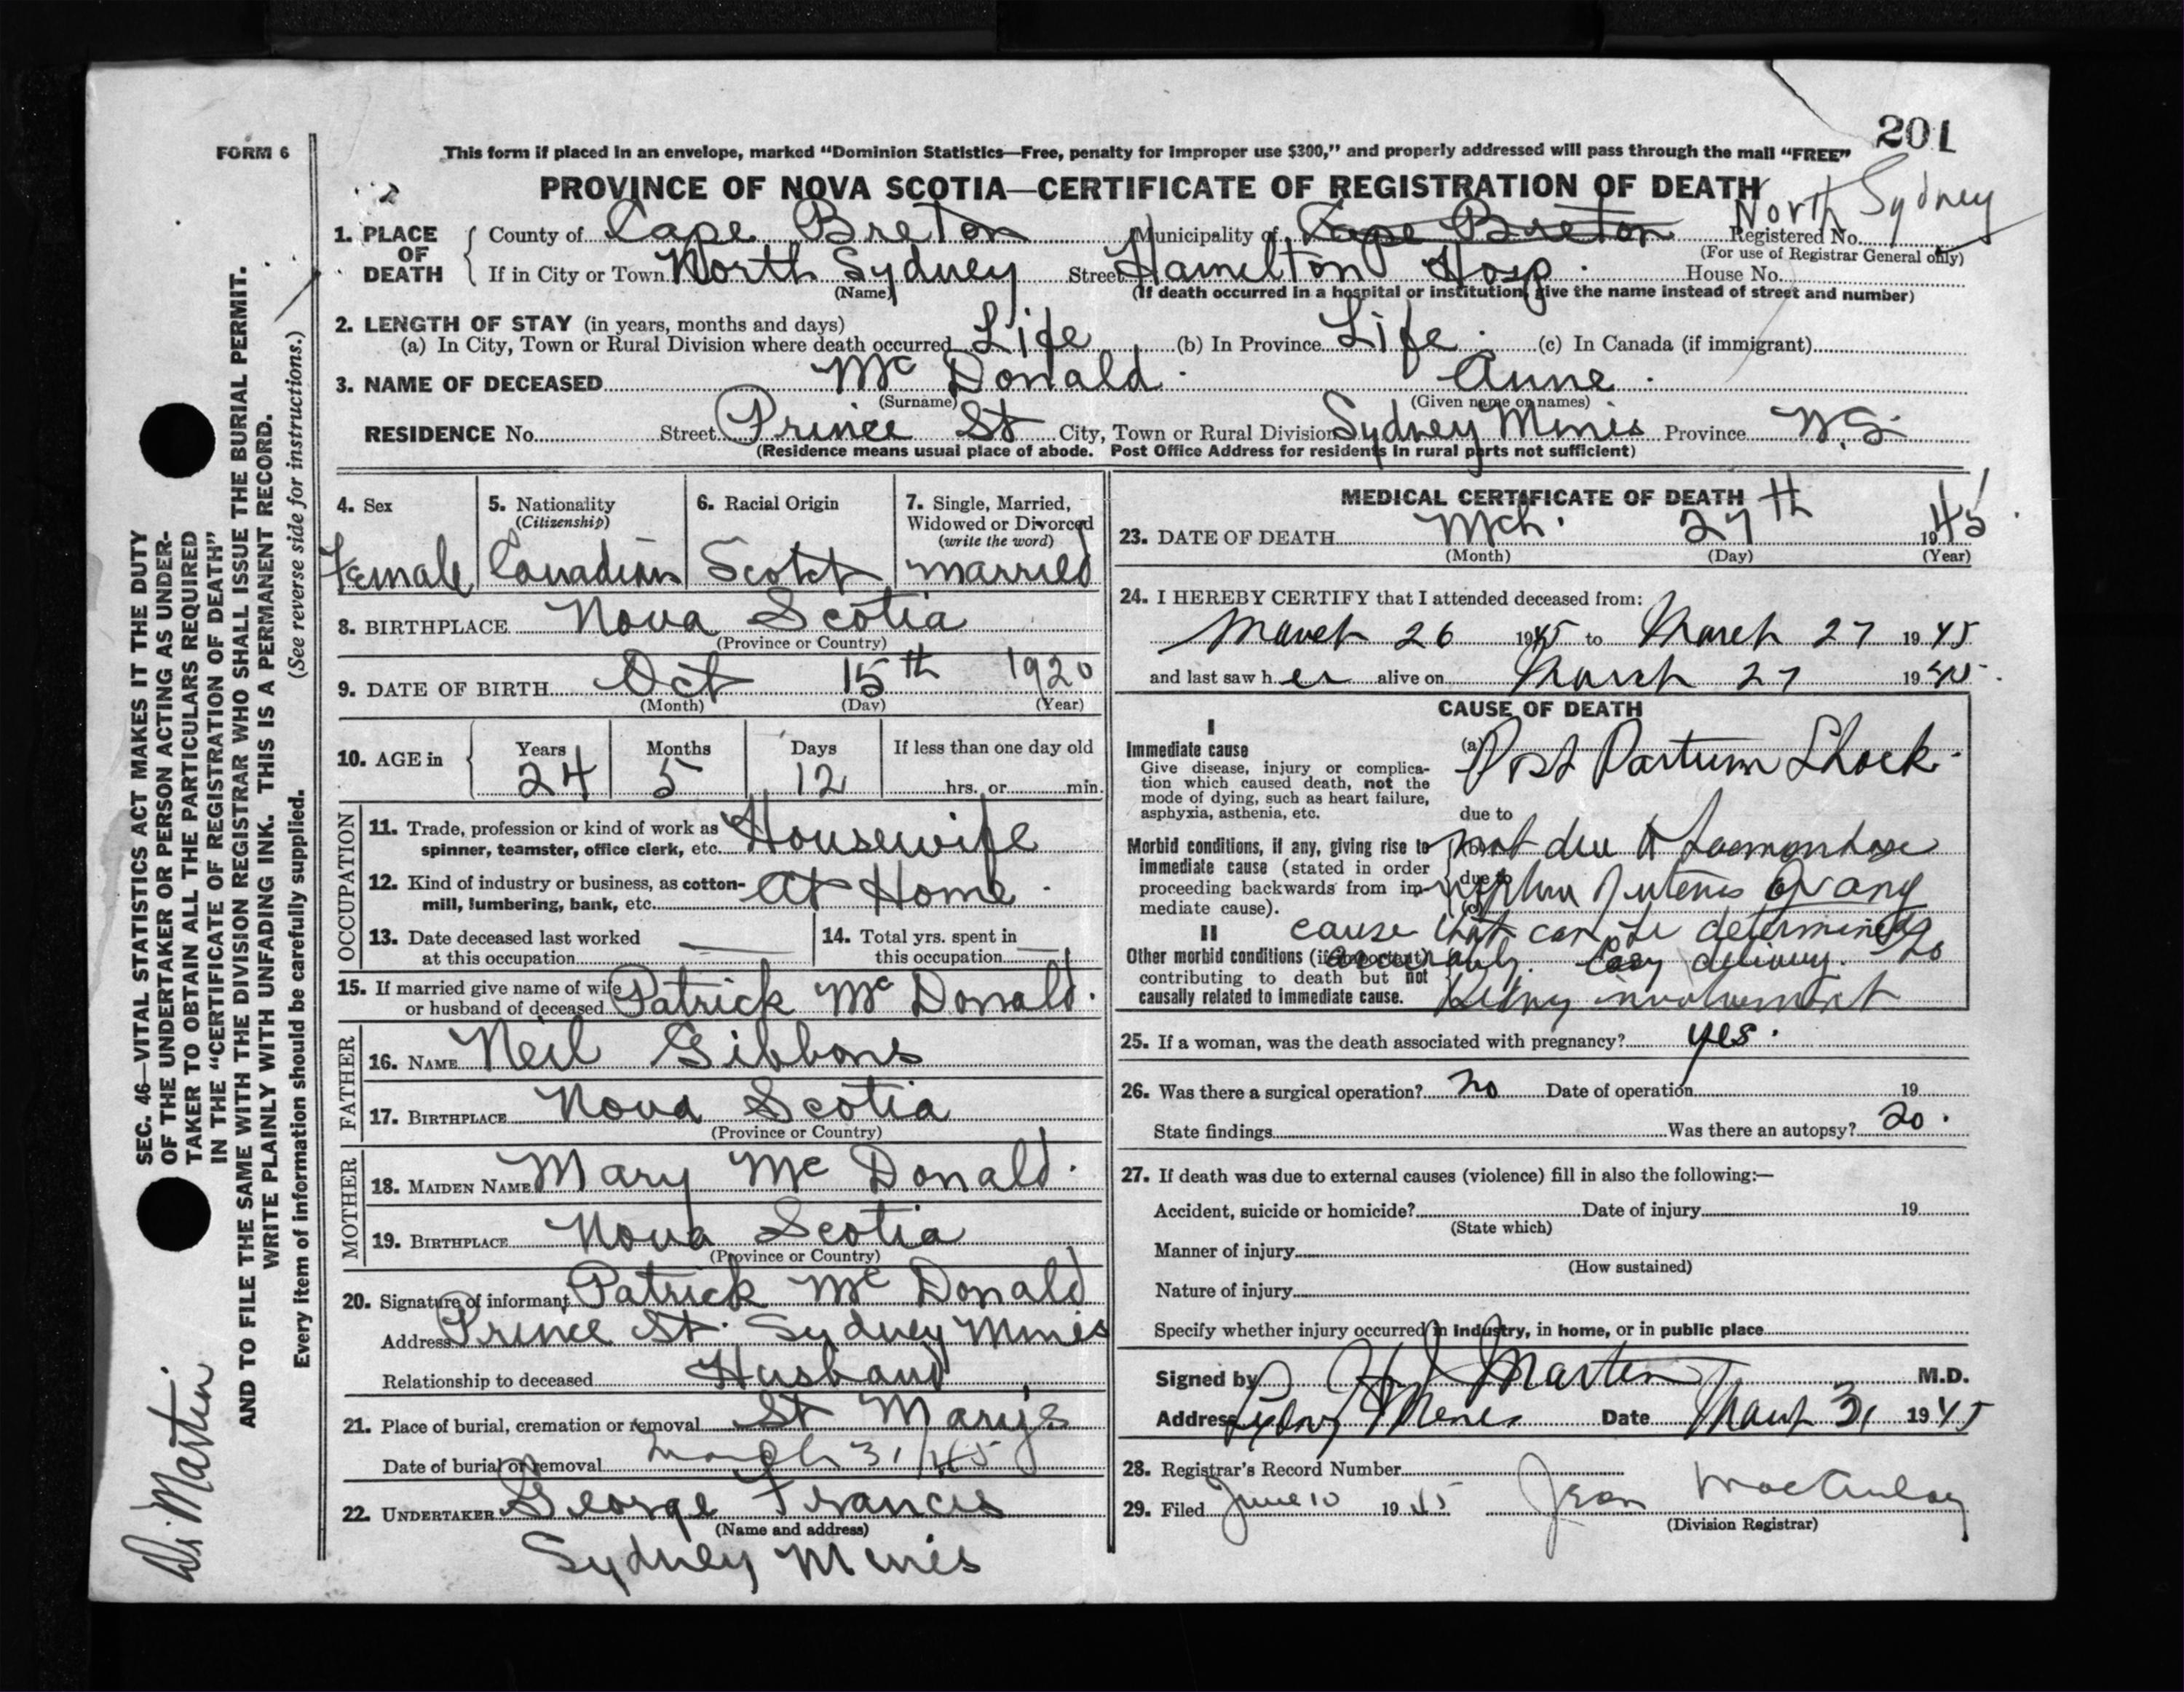 201
FORM 6
This form if placed in an envelope, marked “Dominion Statistics—Free, penalty for improper use $300,” and properly addressed will pass through the mail “FREE”
PROVINCE OF NOVA SCOTIA—CERTIFICATE OF REGISTRATION OF DEATH
North Sydney
1. PLACE OF DEATH County of Cape Breton Municipality of Cape Breton Registered No.
(For use of Registrar General only)
If in City or Town North Sydney Street Hamilton Hosp. House No.
(Name) (If death occurred in a hospital or institution, give the name instead of street and number)
2. LENGTH OF STAY (in years, months and days)
(a) In City, Town or Rural Division where death occurred Life (b) In Province Life (c) In Canada (if immigrant)
3. NAME OF DECEASED Mc Donald Anne
(Surname) (Given name or names)
RESIDENCE No. Street Prince St City, Town or Rural Division Sydney Mines Province N.S.
(Residence means usual place of abode. Post Office Address for residents in rural parts not sufficient)
4. Sex
Female
5. Nationality
(Citizenship)
Canadian
6. Racial Origin
Scotch
7. Single, Married,
Widowed or Divorced
(write the word)
married
8. BIRTHPLACE Nova Scotia
(Province or Country)
9. DATE OF BIRTH Oct 15th 1920
(Month) (Day) (Year)
10. AGE in Years Months Days If less than one day old
24 5 12 hrs. or min.
OCCUPATION
11. Trade, profession or kind of work as
spinner, teamster, office clerk, etc. Housewife
12. Kind of industry or business, as cotton-
mill, lumbering, bank, etc. At Home
13. Date deceased last worked
at this occupation
14. Total yrs. spent in
this occupation
15. If married give name of wife
or husband of deceased Patrick Mc Donald
FATHER
16. NAME Neil Gibbons
17. BIRTHPLACE Nova Scotia
(Province or Country)
MOTHER
18. MAIDEN NAME Mary Mc Donald
19. BIRTHPLACE Nova Scotia
(Province or Country)
20. Signature of informant Patrick Mc Donald
Address Prince St. Sydney Mines
Relationship to deceased Husband
21. Place of burial, cremation or removal St Mary's
Date of burial or removal March 31/45
22. UNDERTAKER George Francis
(Name and address)
Sydney Mines
MEDICAL CERTIFICATE OF DEATH
23. DATE OF DEATH Mch. 27th 1945
(Month) (Day) (Year)
24. I HEREBY CERTIFY that I attended deceased from:
March 26 1945 to March 27 1945
and last saw her alive on March 27 1945
CAUSE OF DEATH
I
Immediate cause
Give disease, injury or complica-
tion which caused death, not the
mode of dying, such as heart failure,
asphyxia, asthenia, etc.
(a) Post Partum Shock
due to
Morbid conditions, if any, giving rise to
immediate cause (stated in order
proceeding backwards from im-
mediate cause).
(b) not due to
due to
(c) uterus or any
II
cause that can be determined
Other morbid conditions (if important)
contributing to death but not
causally related to immediate cause.
accurately. Easy delivery. No
Kidney involvement
25. If a woman, was the death associated with pregnancy? yes
26. Was there a surgical operation? no Date of operation 19
State findings Was there an autopsy? no
27. If death was due to external causes (violence) fill in also the following:—
Accident, suicide or homicide? Date of injury 19
(State which)
Manner of injury
(How sustained)
Nature of injury
Specify whether injury occurred in industry, in home, or in public place
Signed by Martin M.D.
Address Sydney Mines Date March 31 1945
28. Registrar's Record Number
29. Filed June 10 1945 Jean MacAulay
(Division Registrar)
SEC. 46—VITAL STATISTICS ACT MAKES IT THE DUTY
OF THE UNDERTAKER OR PERSON ACTING AS UNDER-
TAKER TO OBTAIN ALL THE PARTICULARS REQUIRED
IN THE “CERTIFICATE OF REGISTRATION OF DEATH”
AND TO FILE THE SAME WITH THE DIVISION REGISTRAR WHO SHALL ISSUE THE BURIAL PERMIT.
WRITE PLAINLY WITH UNFADING INK. THIS IS A PERMANENT RECORD.
Every item of information should be carefully supplied. (See reverse side for instructions.)
Dr Martin